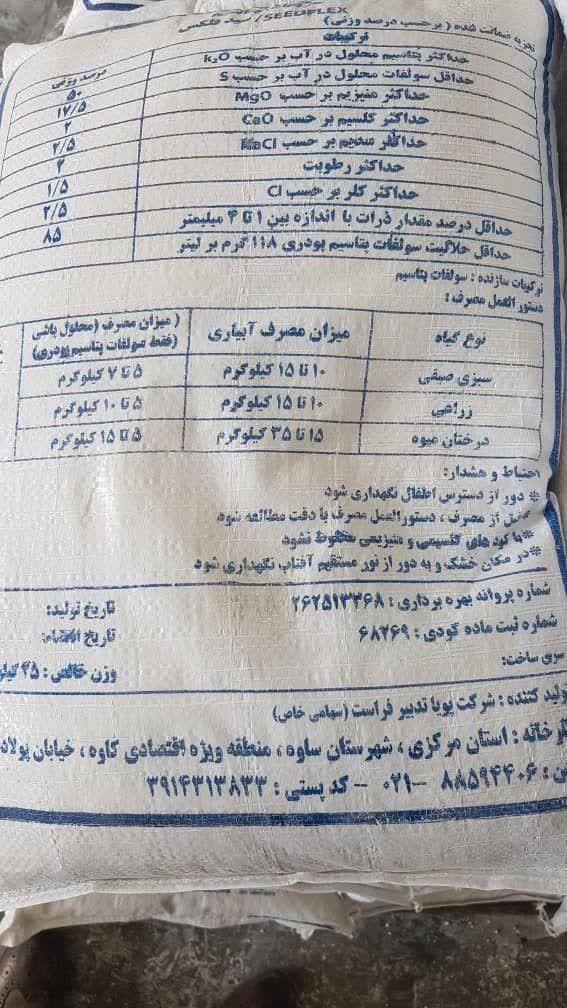 SEEDFLEX / سید فلکس
تجزیه ضمانت شده ( برحسب درصد وزنی)
ترکیبات درصد وزنی
حداکثر پتاسیم محلول در آب بر حسب K₂O ۵۰
حداقل سولفات محلول در آب بر حسب S ۱۷/۵
حداکثر منیزیم بر حسب MgO ۲
حداکثر کلسیم بر حسب CaO ۲/۵
حداکثر سدیم بر حسب NaCl ۲
حداکثر رطوبت ۱/۵
حداکثر کلر بر حسب Cl ۲/۵
حداقل درصد مقدار ذرات با اندازه بین ۱ تا ۴ میلیمتر ۸۵
حداقل حلالیت سولفات پتاسیم پودری ۱۱۸ گرم بر لیتر
ترکیبات سازنده : سولفات پتاسیم
دستور العمل مصرف :
نوع گیاه میزان مصرف آبیاری ( میزان مصرف (محلول پاشی
(فقط سولفات پتاسیم پودری)
سبزی صیفی ۱۰ تا ۱۵ کیلوگرم ۵ تا ۷ کیلوگرم
زراعی ۱۰ تا ۱۵ کیلوگرم ۵ تا ۱۰ کیلوگرم
درختان میوه ۱۵ تا ۳۵ کیلوگرم ۵ تا ۱۵ کیلوگرم
احتیاط و هشدار:
* دور از دسترس اطفال نگهداری شود
از مصرف ، دستورالعمل مصرف با دقت مطالعه شود
*با کود های کلسیمی و منیزیمی مخلوط نشود
*در مکان خشک و به دور از نور مستقیم آفتاب نگهداری شود
شماره پروانه بهره برداری : ۲۶۲۵۱۳۳۶۸ تاریخ تولید:
شماره ثبت ماده کودی : ۶۸۲۶۹ تاریخ انقضاء:
سری ساخت: وزن خالص : ۲۵ کیلو
تولید کننده : شرکت پویا تدبیر فراست (سهامی خاص)
کارخانه : استان مرکزی ، شهرستان ساوه ، منطقه ویژه اقتصادی کاوه ، خیابان پولاد
ن : ۸۸۵۹۴۴۰۶ –۰۲۱ – کد پستی : ۳۹۱۴۳۱۳۸۳۳